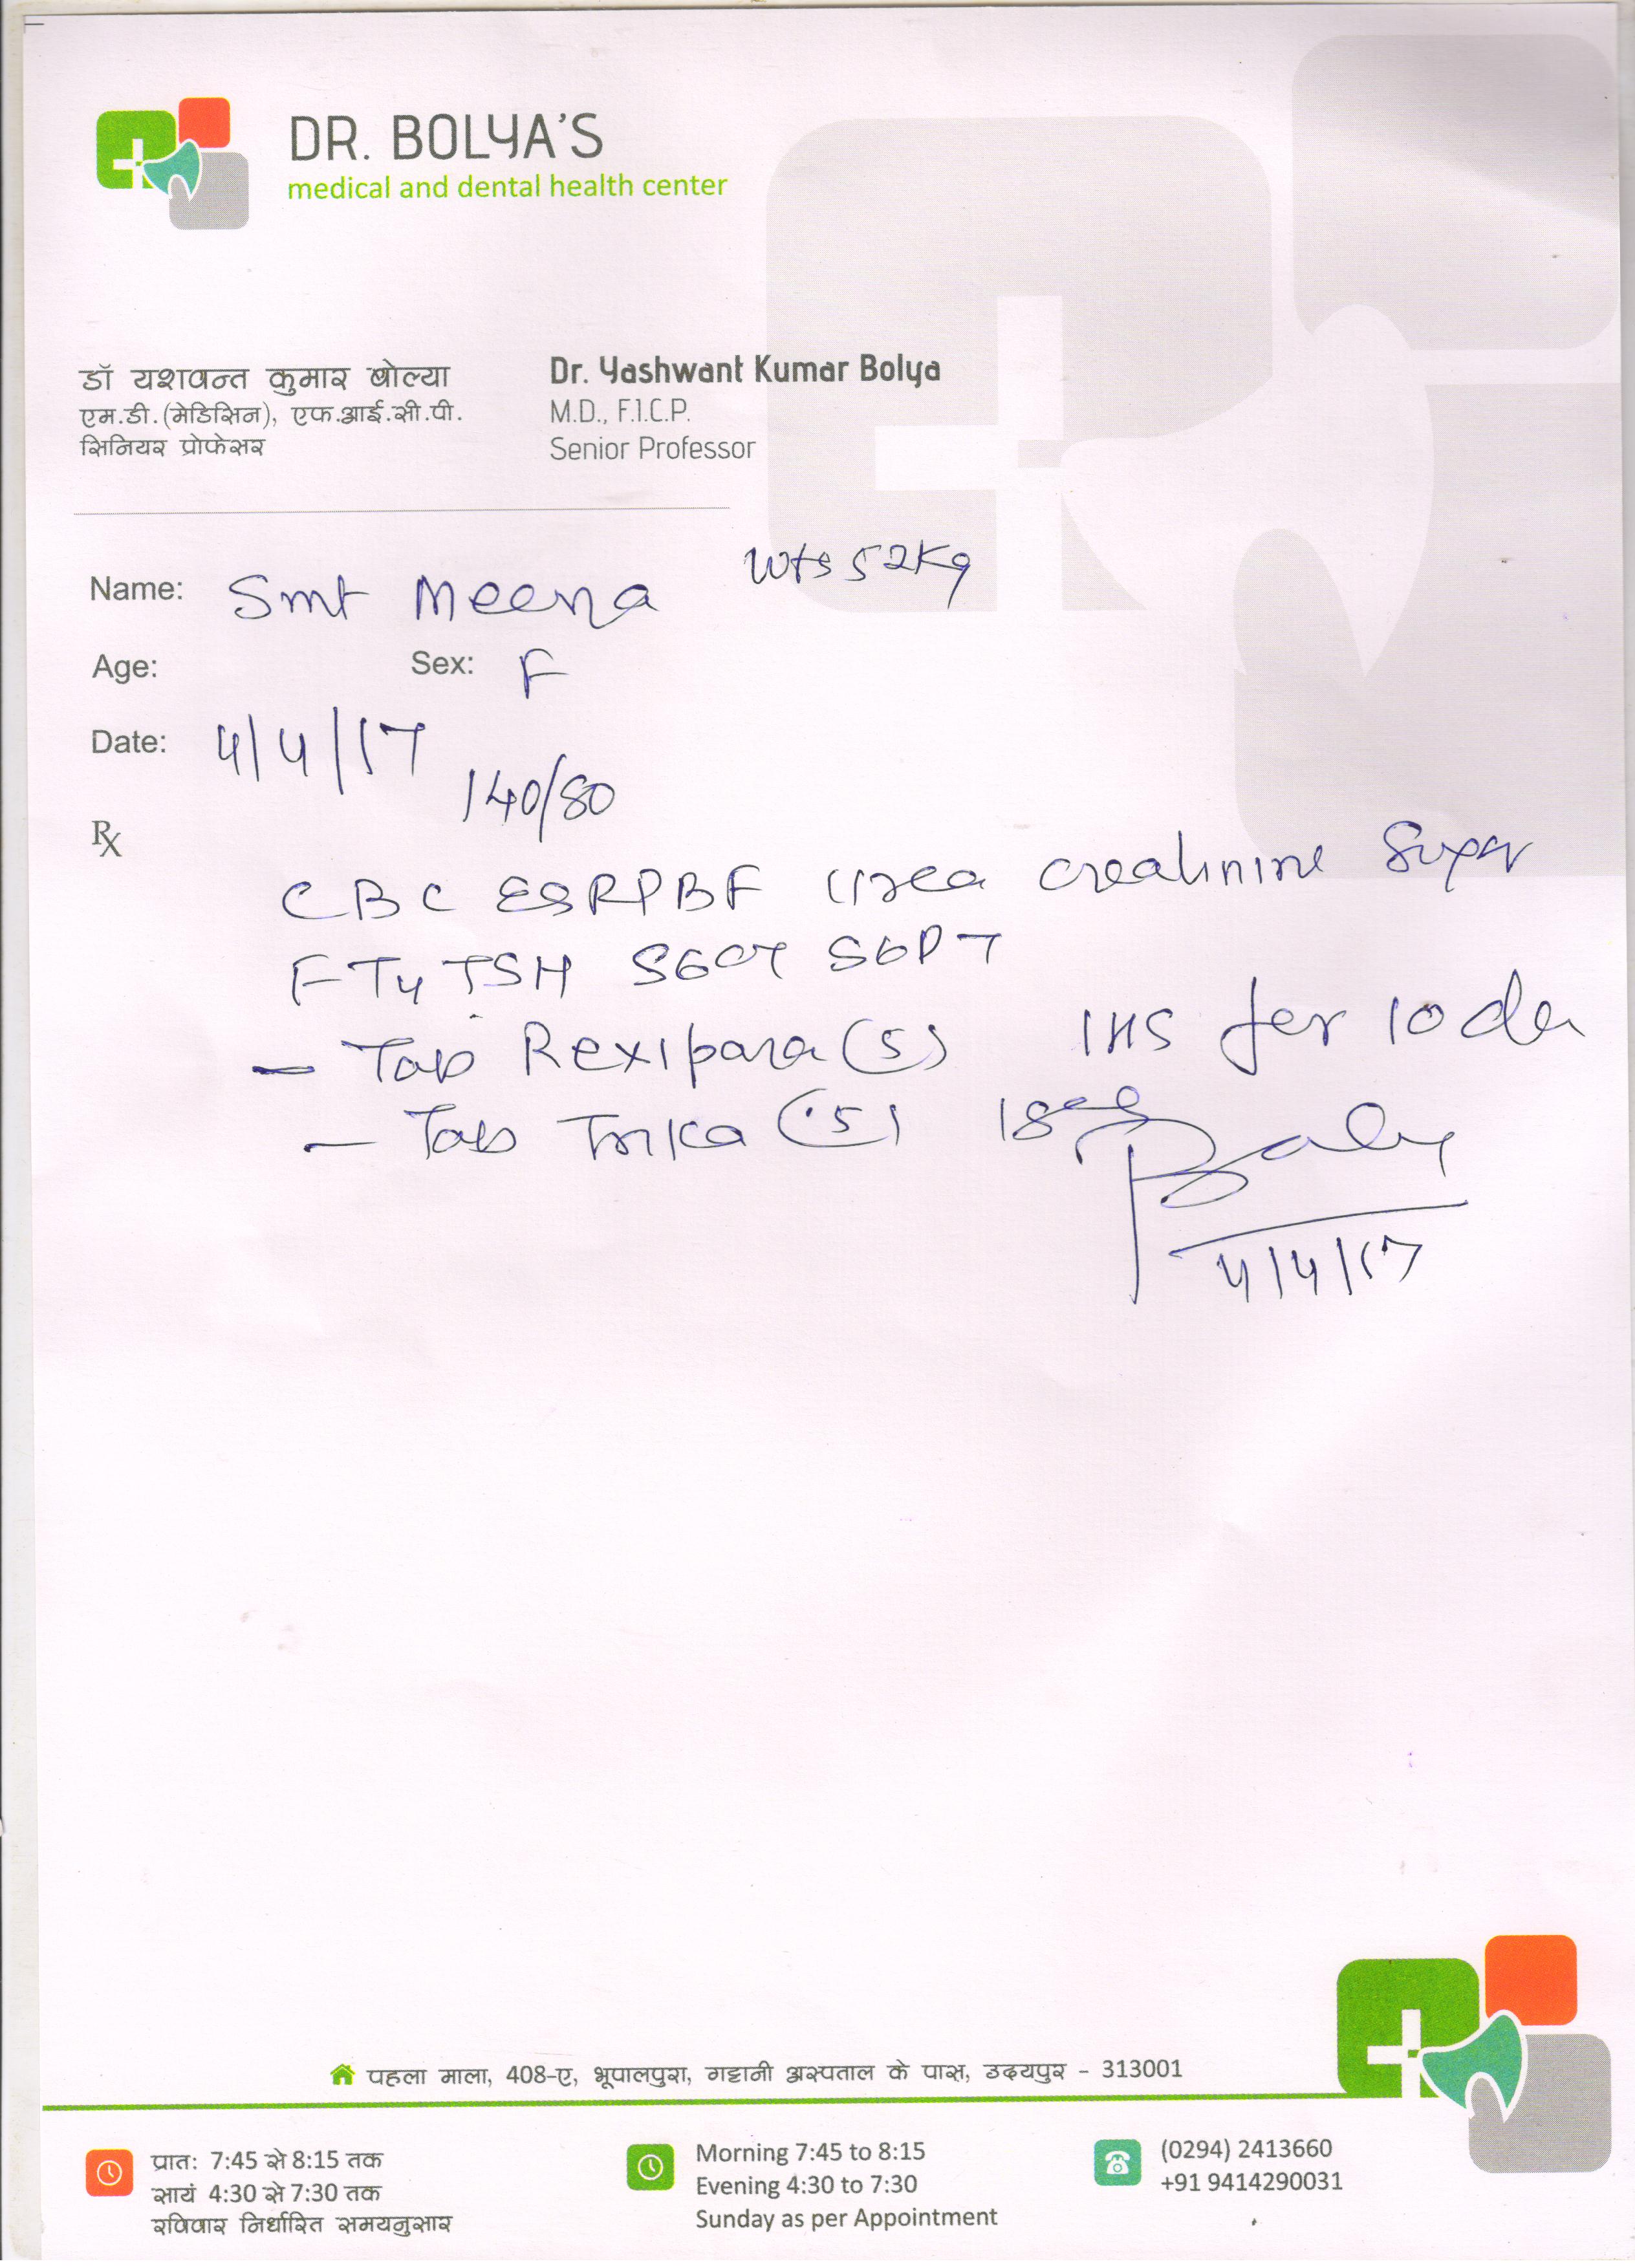 DR. BOLYA'S
medical and dental health center
डॉ यशवन्त कुमार बोल्या
एम.डी. (मेडिसिन), एफ.आई.सी.पी.
सिनियर प्रोफेसर
Dr. Yashwant Kumar Bolya
M.D., F.I.C.P.
Senior Professor
Name: Smt Meena 52Kg
Age: Sex: F
Date: 4/4/17
140/80
Rx
CBC ESR PBF Urea Creatinine Sugar
FT4 TSH SGOT SGPT
- Tab Rexipara (5) 1HS for 10
- Tab Trika (.5)
4/4/17
पहला माला, 408-ए, भूपालपुरा, गट्टानी अस्पताल के पास, उदयपुर - 313001
प्रात: 7:45 से 8:15 तक
सायं 4:30 से 7:30 तक
रविवार निर्धारित समयनुसार
Morning 7:45 to 8:15
Evening 4:30 to 7:30
Sunday as per Appointment
(0294) 2413660
+91 9414290031